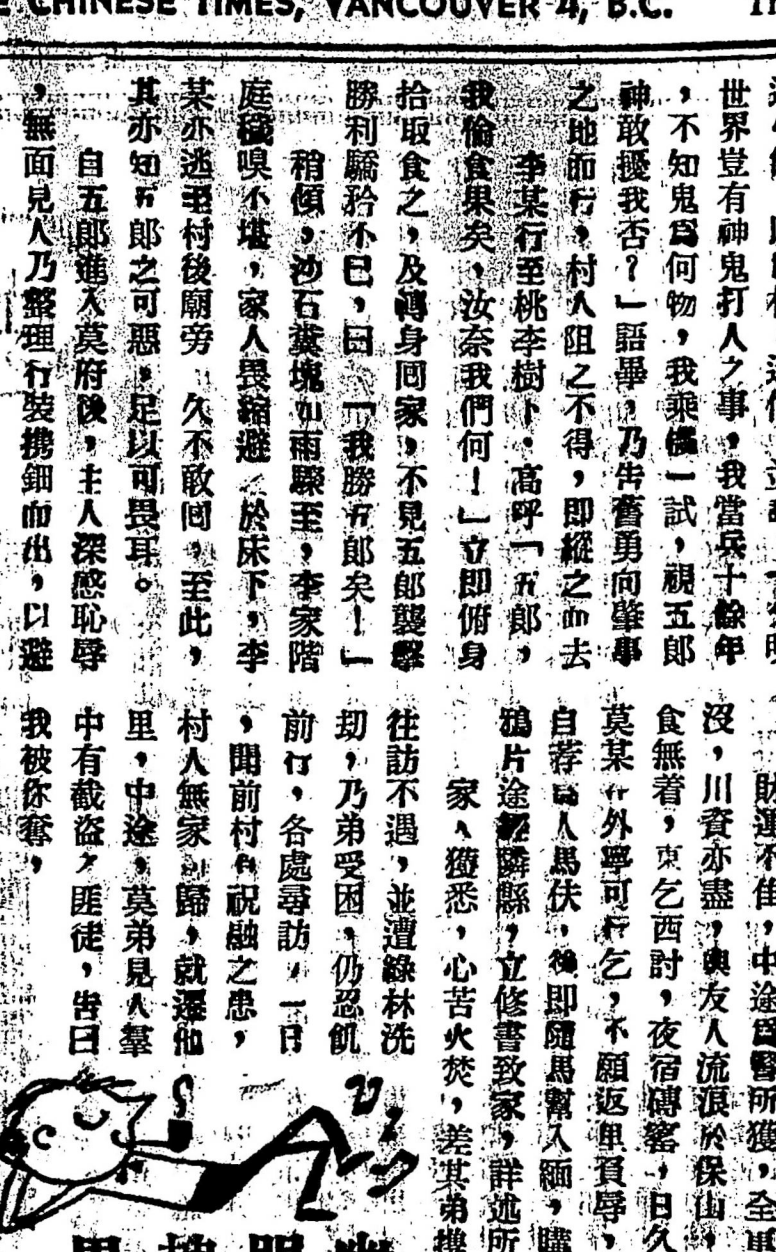 CHINESE TIMES, VANCOUVER 4, B.C.
世界豈有神鬼打人之事，我當兵十餘年
，不知鬼爲何物，我乘機一試，視五郎
神敢擾我否？」語畢，乃告奮勇向肇事
之地而行，村人阻之不得，即縱之而去
李某行至桃李樹下，高呼「五郎，
我偷食果矣，汝奈我們何！」立即俯身
拾取食之，及轉身囘家，不見五郎襲擊
勝利驕矜不已，曰「我勝五郎矣！」
稍傾，沙石糞塊如雨驟至，李家階
庭穢嗅不堪，家人畏縮避於床下，李
某亦逃至村後廟旁 久不敢囘，至此，
其亦知五郎之可惡，足以可畏耳。
自五郎進入莫府後，主人深感恥辱
，無面見人乃整理行裝携細而出，以避
財運不佳，中途爲醫所獲，全
沒，川資亦盡，與友人流浪於保山，
食無着，東乞西討，夜宿磚窰，日久
莫某在外寧可行乞，不願返里負辱，
自荐爲人馬伕，後即隨馬幫入緬，購
鴉片途經隣縣，立修書致家，詳述所
家人獲悉，心苦火焚，差其弟
往訪不遇，並遭綠林洗
刧，乃弟受困，仍忍飢
前行，各處尋訪，一日
，聞前村有祝融之患，
村人無家可歸，就遷他
里，中途，莫弟見人羣
中有截盜之匪徒，告曰
我被你奪，